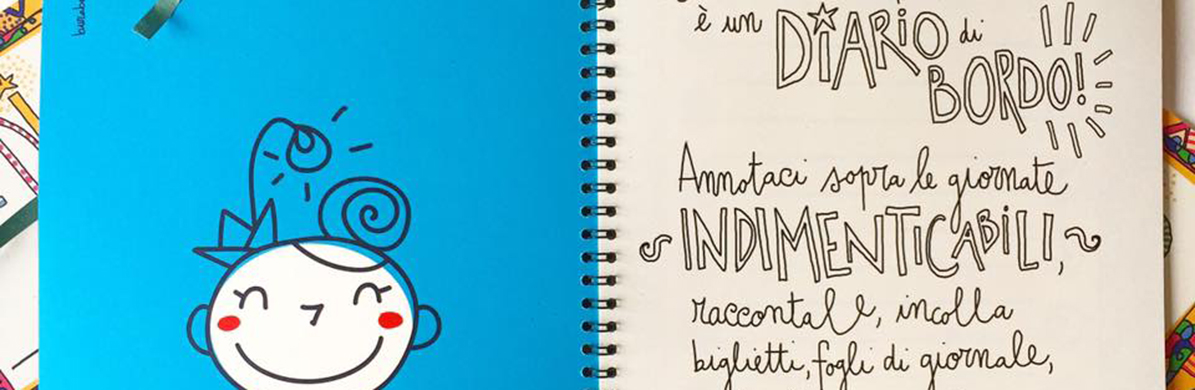 è un DiARiO di
BORDO!
Annotaci sopra le giornate
INDIMENTICABiLI,
raccontale, incolla
biglietti, fogli di giornale,